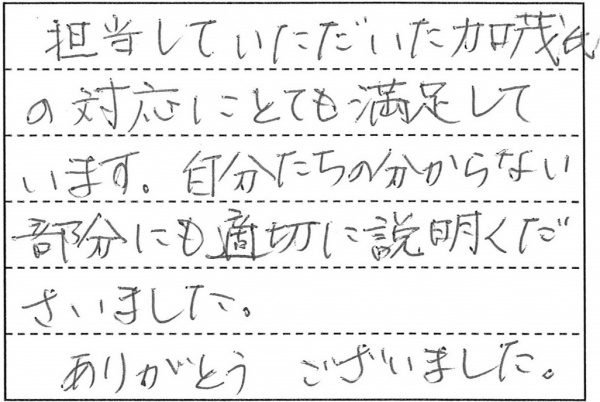 担当していただいた加茂氏
の対応にとても満足して
います。自分たちの分からない
部分にも適切に説明くだ
さいました。
ありがとう ございました。